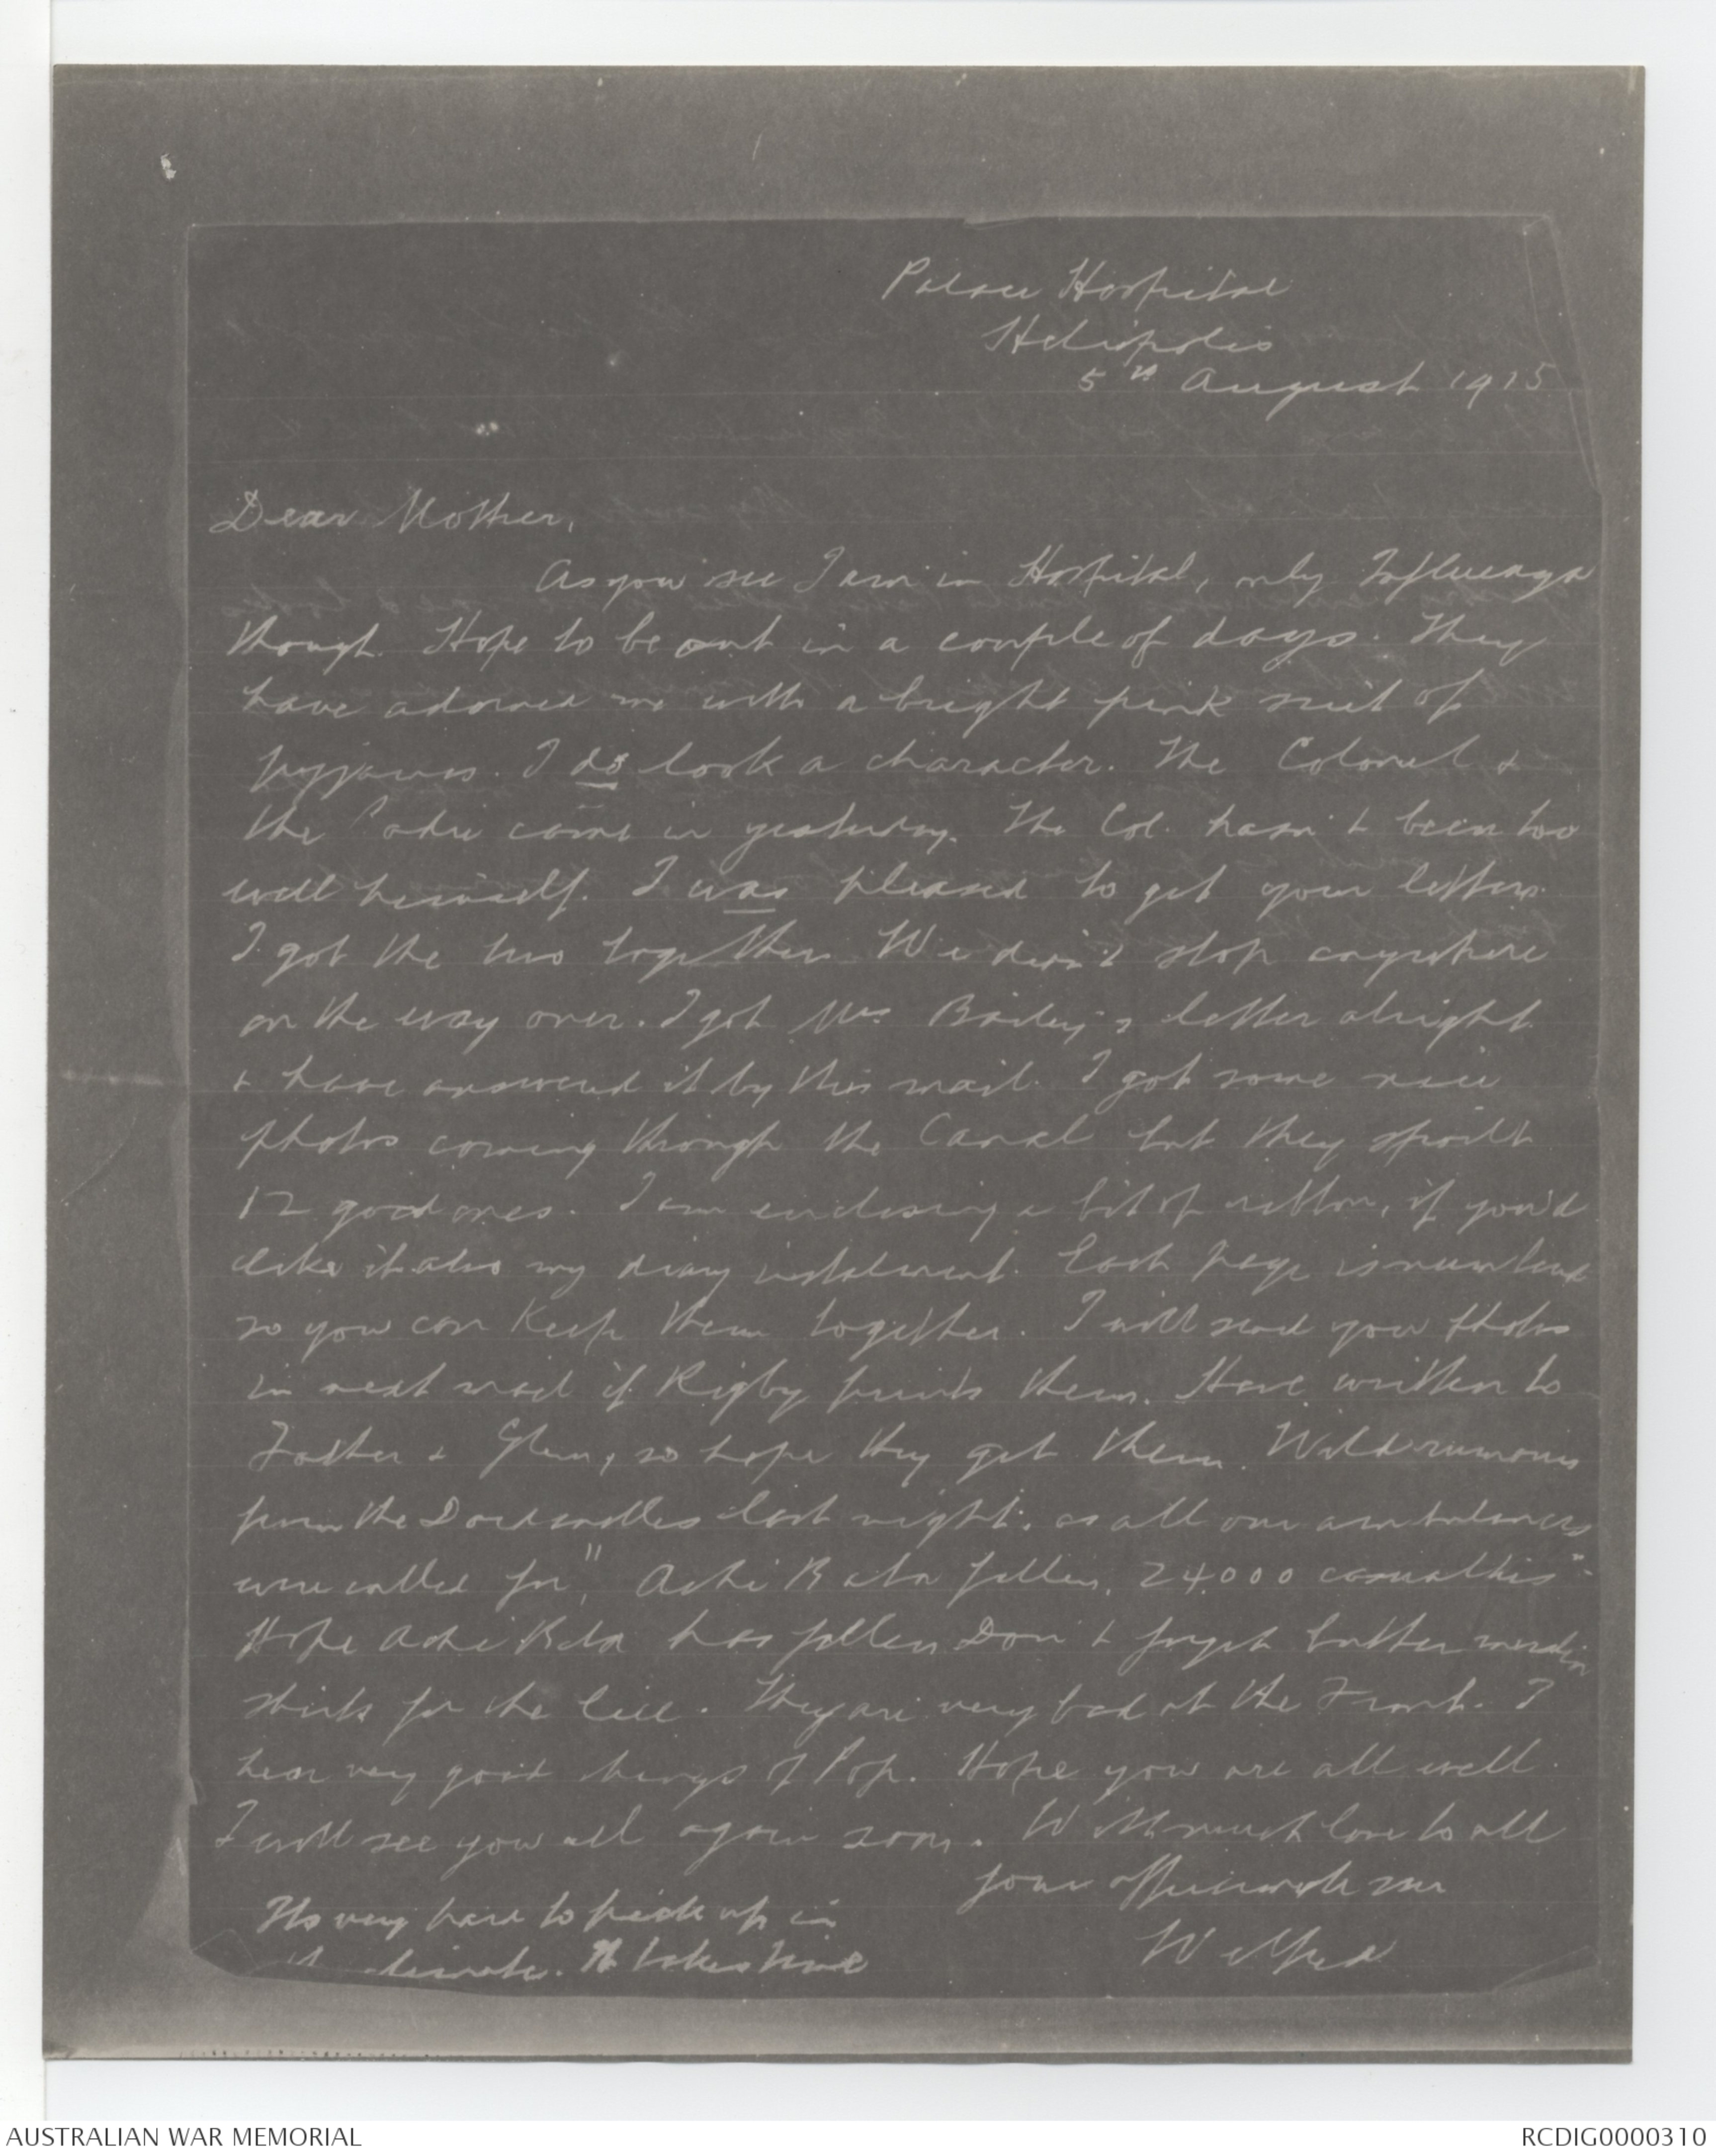 Palace Hospital
Heliopolis
5th August 1915
Dear Mother,
As you see I am in Hospital, only Influenza
though. Hope to be out in a couple of days. They
have adorned me with a bright pink suit of
pyjamas. I do look a character. The Colonel &
the Padre came in yesterday. The Col. hasn't been too
well himself. I was pleased to get your letters.
I got the two together. We didn't stop anywhere
on the way over. I got Mrs Bailey's letter alright
& have answered it by this mail. I got some nice
photos coming through the Canal but they spoilt
12 good ones. I am enclosing a bit of ribbon, if you'd
like it also my diary instalment. Each page is numbered
so you can keep them together. I will send you photos
in next mail if Rigby prints them. Have written to
Father & Glen, so hope they get them. Wild rumours
from the Dardanelles last night, as all our ambulances
were called for, "Achi Baba fallen, 24.000 casualties"
Hope Achi Baba has fallen Don't forget
shirts for the lice. They are very bad at the Front. I
hear very good things of Pop. Hope you are all well.
I will see you all again soon. With much love to all
your affectionate son
Wilfred
It's very hard to pick up in
climate. It takes time
AUSTRALIAN WAR MEMORIAL
RCDIG0000310